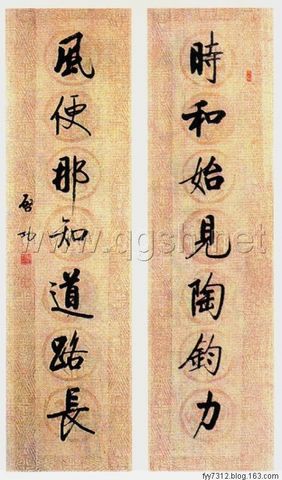 時和始見陶鈞力
風便那知道路長
啟功
www.qgsh.net
fyy7312.blog.163.com